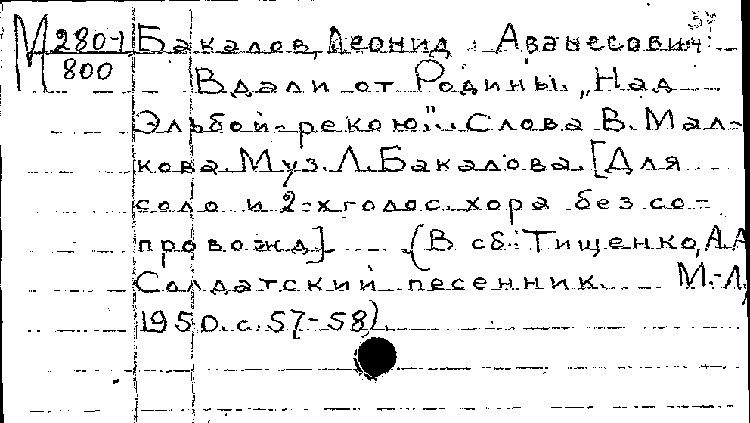 М 280-1 Бакалов, Леонид Аванесович
800 Вдали от Родины. „Над
Эльбой-рекою". Слова В. Мал-
кова. Муз. Л. Бакалова. [Для
соло и 2-х голос. хора без со-
провожд]. (В сб.: Тищенко, А.А
Солдатский песенник. М.-Л,
1950. с. 57-58).